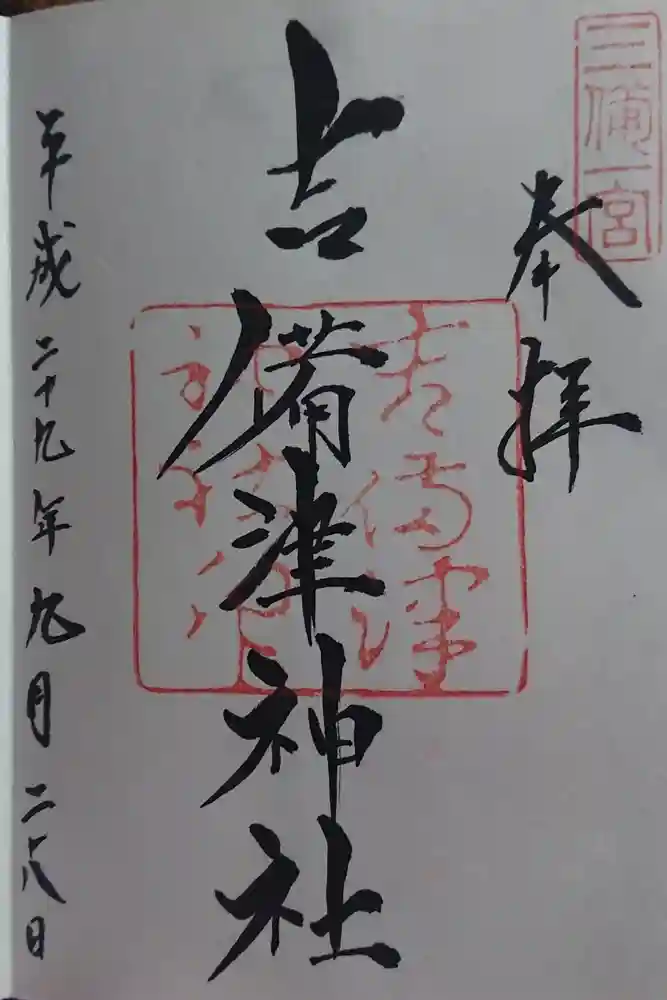 三備一宮
奉拝
吉備津神社
吉備津
神社
平成二十九年九月二十八日